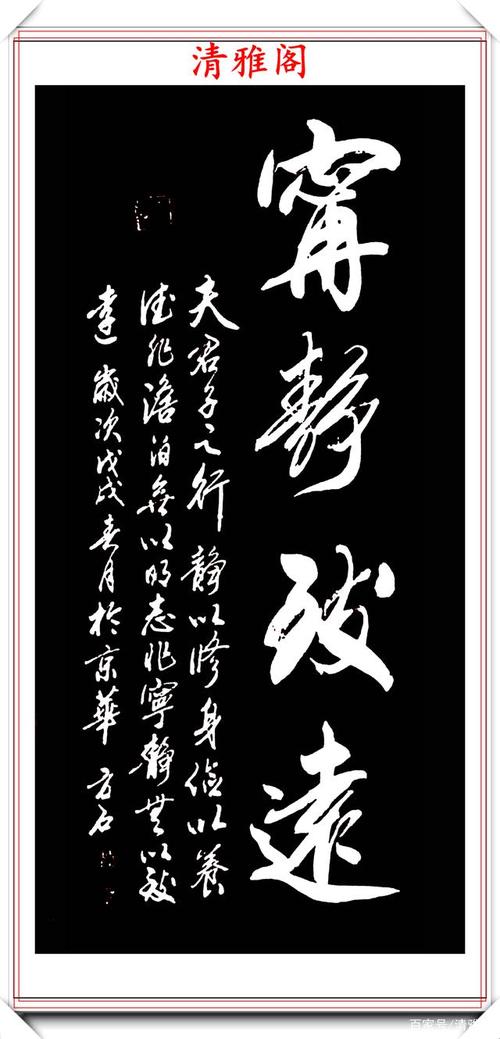 清雅阁
寗静致遠
夫君子之行静以修身俭以養
德非澹泊無以明志非寧静無以致
遠歲次戊戌春月於京華方石
百家号/清雅